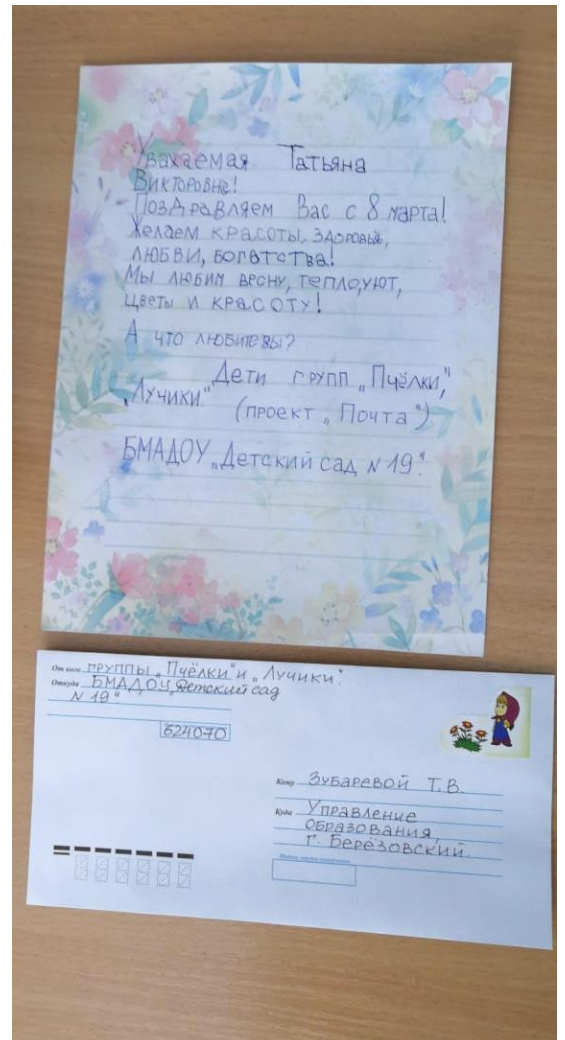 Уважаемая Татьяна
Викторовна!
Поздравляем Вас с 8 марта!
Желаем красоты, здоровья,
любви, богатства!
Мы любим весну, тепло, уют,
цветы и красоту!
А что любите вы?
Дети групп „Пчёлки",
„Лучики".
(проект „Почта")
БМАДОУ „Детский сад N 19".
От кого группы „Пчёлки" и „Лучики".
Откуда БМАДОУ „Детский сад
N 19"
624070
Кому Зубаревой Т.В.
Куда Управление
образования,
г. Берёзовский.